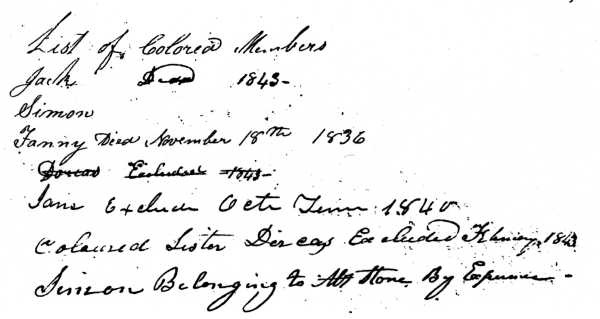 List of Colored Members
Jack Dead 1843-
Simon
Fanny Died November 18th 1836
Dorcas Excluded 1843-
Jane Exclude Octr Term 1840
Coloured Sister Dorcas Excluded 1843
Simon Belonging to Stone By Experience -